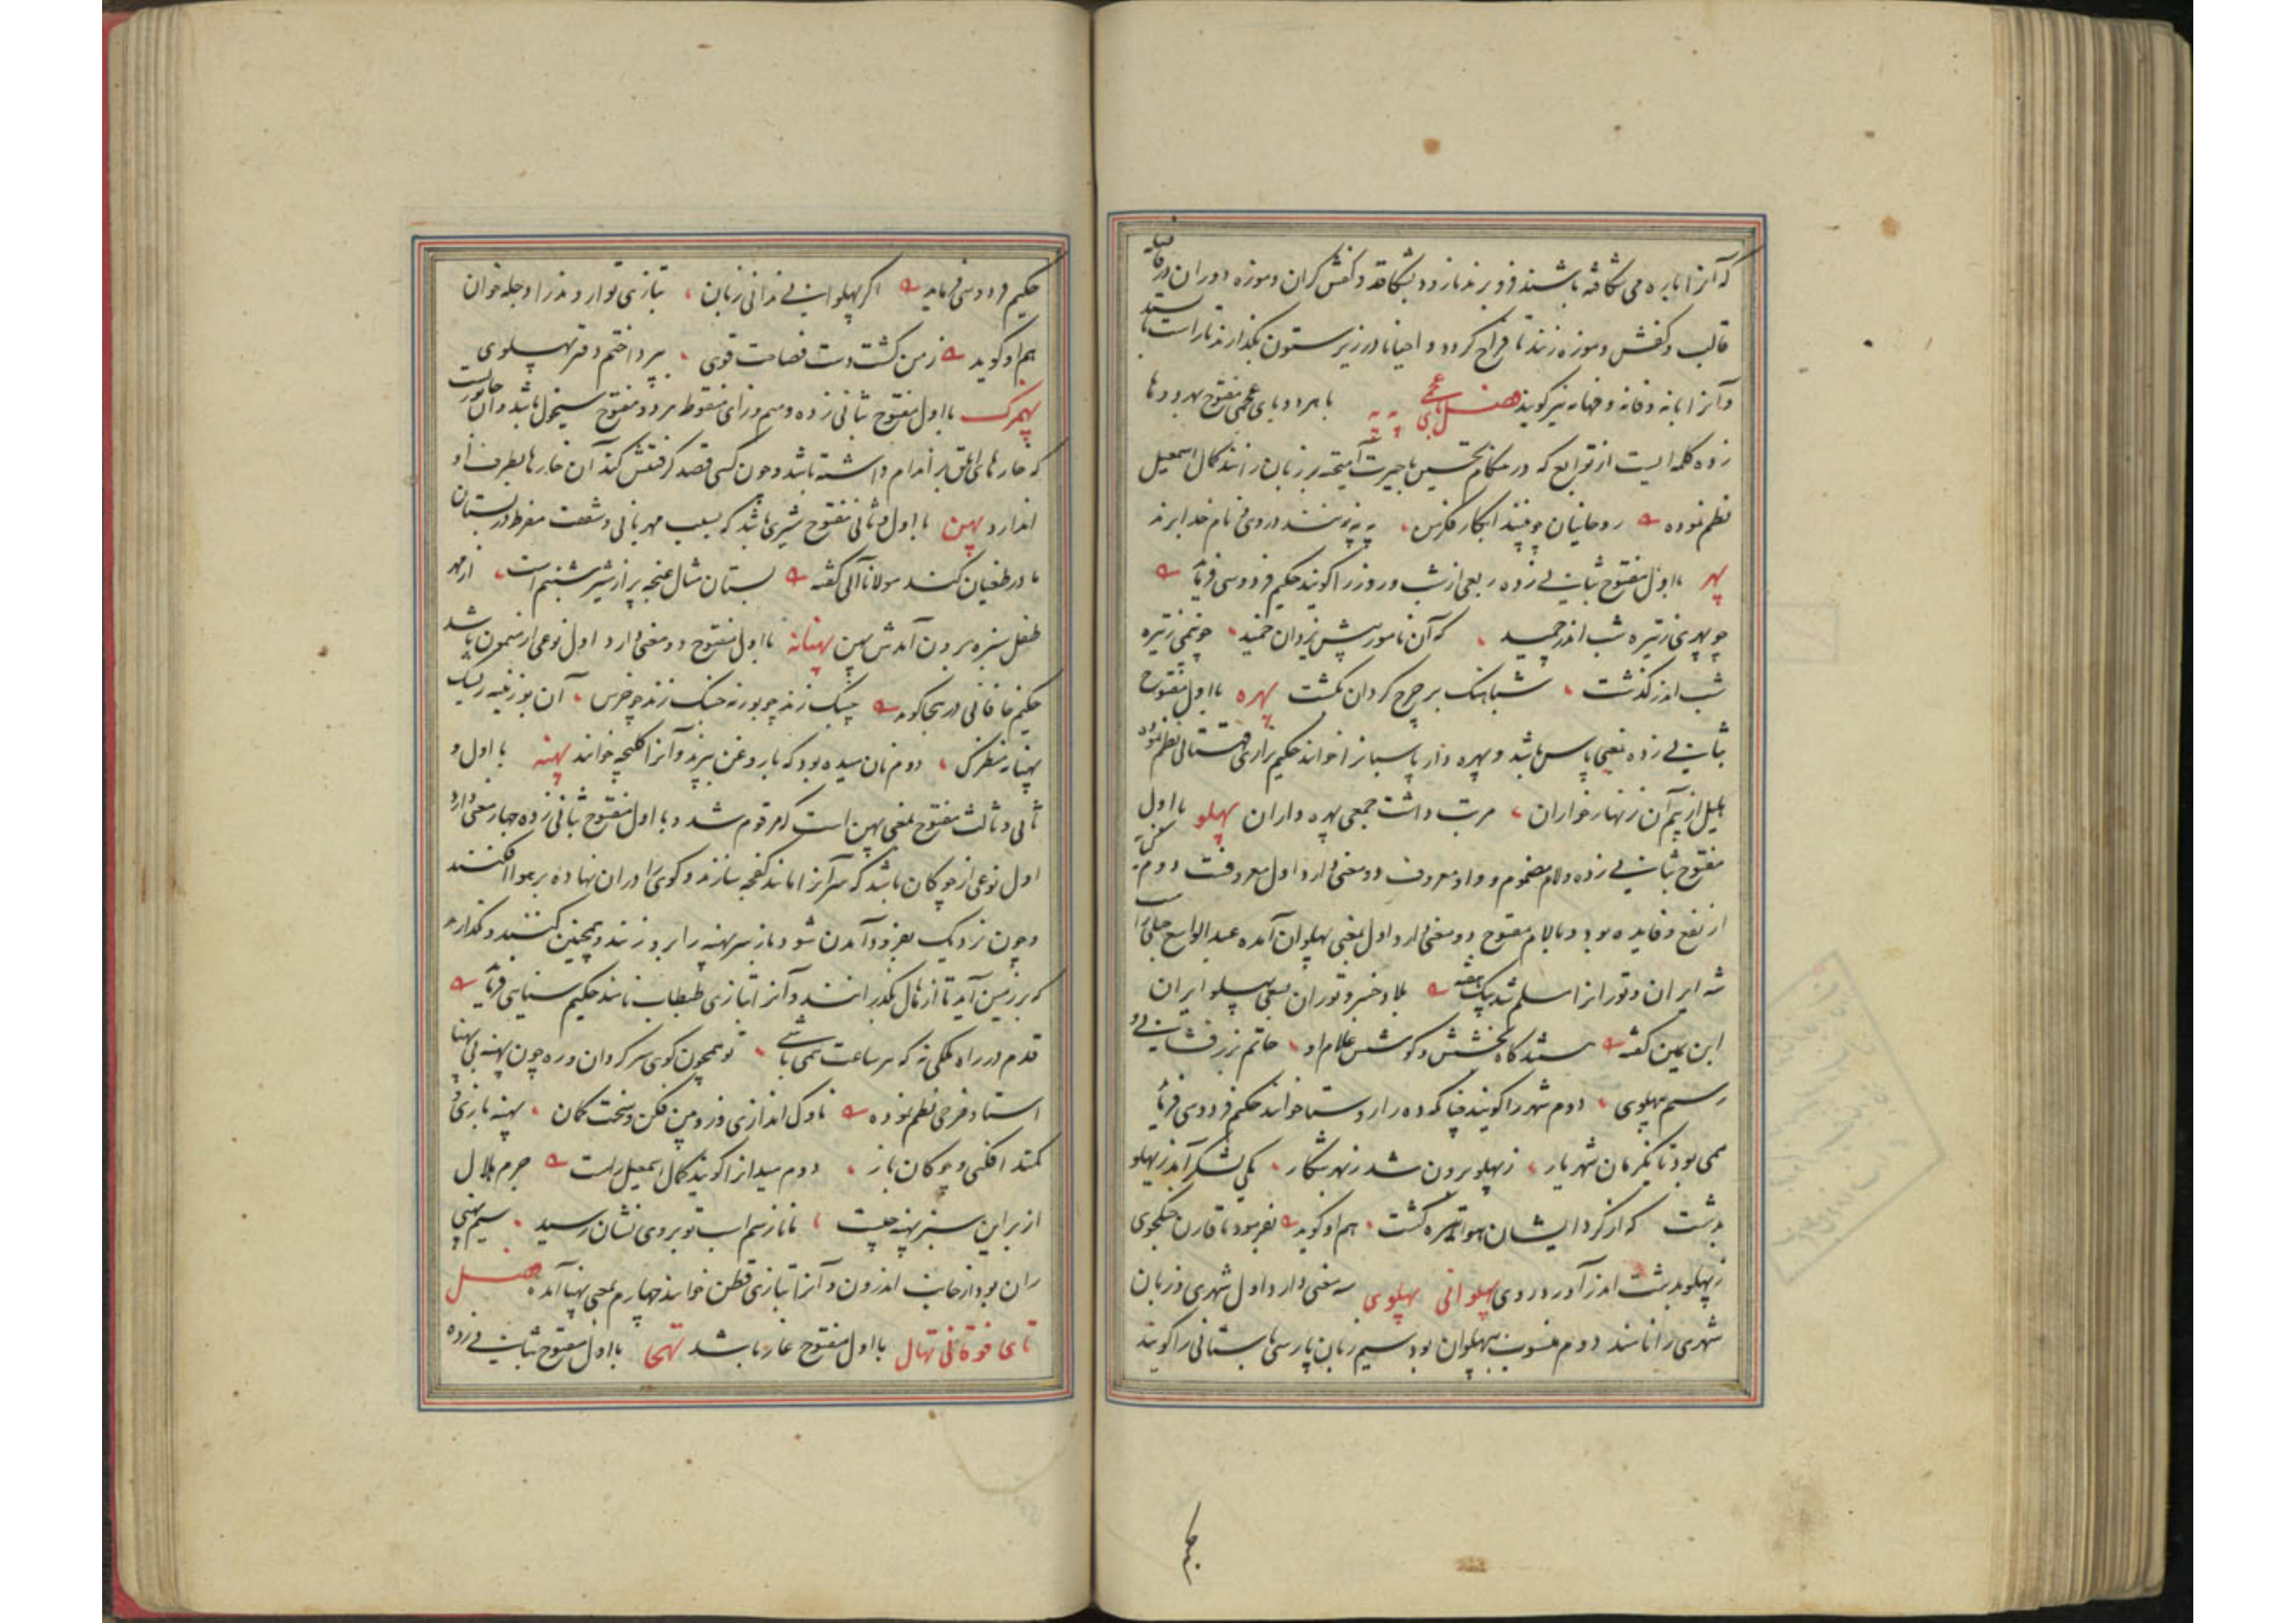 که آنرا با اره می شکافته باشند فرو برند تا زود بشکافد و کفش گران و موزه دوزان در فاصله
قالب و کفش و موزه زنند تا فراخ گردد و احیانا در زیر ستون بگذارند تا راست بایستد
و آنرا بانه و فانه و فهانه نیز گویند فصل بای عجمی په په با هر دو بای عجمی مفتوح بهر دو ها
زده کلمه ایست از توابع که در هنگام تحسین با حیرت آمیخته بر زبان رانند کمال اسمعیل
نظم نموده روحانیان چو بینند ابکار فکرتش په په زنند در وی نام خدا برند
پهر با اول مفتوح بثانی زده ربعی از شب و روز را گویند حکیم فردوسی فرماید
چو پهری ز تیره شب اندر چمید که آن نامور پیش یزدان خمید چو نیمی ز تیره
شب اندر گذشت شباهنگ بر چرخ گردان بگشت پهره با اول مفتوح
بثانی زده بمعنی پاس باشد و پهره دار پاسبان را خوانند حکیم نزاری قهستانی نظم نموده
بلیل از بیم آن زنهار خواران مرتب داشت جمعی پهره داران پهلو با اول
مفتوح بثانی زده و لام مضموم و واو معروف دو معنی دارد اول معروفست دوم
از نفع و فایده بود و با لام مفتوح دو معنی دارد اول بمعنی پهلوان آمده عبدالواسع جبلی راست
شه ایران و توران را مسلم شد بیک هفته بلاد خسرو توران بسعی پهلو ایران
ابن یمین گفته بنده گاه بخشش و کوشش غلام او حاتم بزر فشانی و
رستم پهلوی دوم شهر را گویند چنانکه ده را روستا خوانند حکیم فردوسی فرماید
همی بود تا یکزمان شهریار ز پهلو برون شد ز بهر شکار یکی لشکر آمد ز پهلو
بدشت که از گرد ایشان هوا تیره گشت هم او گوید بفرمود تا قارن جنگجوی
ز پهلو بدشت اندر آورد روی پهلوانی پهلوی سه معنی دارد اول شهری و زبان
شهری را نامند دوم منسوب به پهلوان بود سیم زبان پارسی باستانی را گویند
حکیم فردوسی فرماید اگر پهلوانی ندانی زبان بتازی تو اروند را دجله خوان
هم او گوید ز من گشت دست فصاحت قوی بپرداختم دفتر پهلوی
پهمزک با اول مفتوح بثانی زده و میم و زای منقوط هر دو مفتوح سیخول باشد و آن جانوریست
که خارهای ابلق بر اندام داشته باشد و چون کسی قصد گرفتنش کند آن خارها بطرف او
اندازد پهن با اول و ثانی مفتوح شیری باشد که بسبب مهربانی و شفقت مفرط در پستان
مادر طغیان کند مولانا آلی گفته بستان مثال غنچه پر از شیر شبنم است از مهر
طفل سبزه برون آمدش پهن پهنانه با اول مفتوح دو معنی دارد اول نوعی از میمون باشد
حکیم خاقانی در هجا گوید چنگ زند چو بوزنه خنک زند چو خرس آن بوزینه ریشک
پهنانه منظرک دوم نان میده بود که با روغن بپزند و آنرا کلیچه خوانند پهنه با اول و
ثانی و ثالث مفتوح بمعنی پهن است که مرقوم شد و با اول مفتوح بثانی زده چهار معنی دارد
اول نوعی از چوگان باشد که سر آنرا مانند کفچه سازند و گوی را در آن نهاده بر هوا افکنند
و چون نزدیک بفرود آمدن شود باز سر پهنه را برو زنند و همچنین کنند و نگذارند
که بر زمین آید تا از هال بگذرانند و آنرا بتازی طبطاب نامند حکیم سنایی فرماید
قدم در راه ملکی نه که هر ساعت همی باشی تو همچون گوی سرگردان و ره چون پهنه بی پهنا
استاد فرخی نظم نموده ناوک اندازی و زوبین فکن و سخت کمان پهنه بازی و
کمند افکنی و چوگان باز دوم میدان را گویند کمال اسمعیل راست جرم هلال
از بر این سبز پهنه چیست تا ناز سم اسب تو بروی نشان رسید سیم پهنی
ران بود از جانب اندرون و آنرا بتازی قطن خوانند چهارم بمعنی پهنا آمده فصل
تای فوقانی تهال با اول مفتوح غار باشد تهجا با اول مفتوح بثانی زده